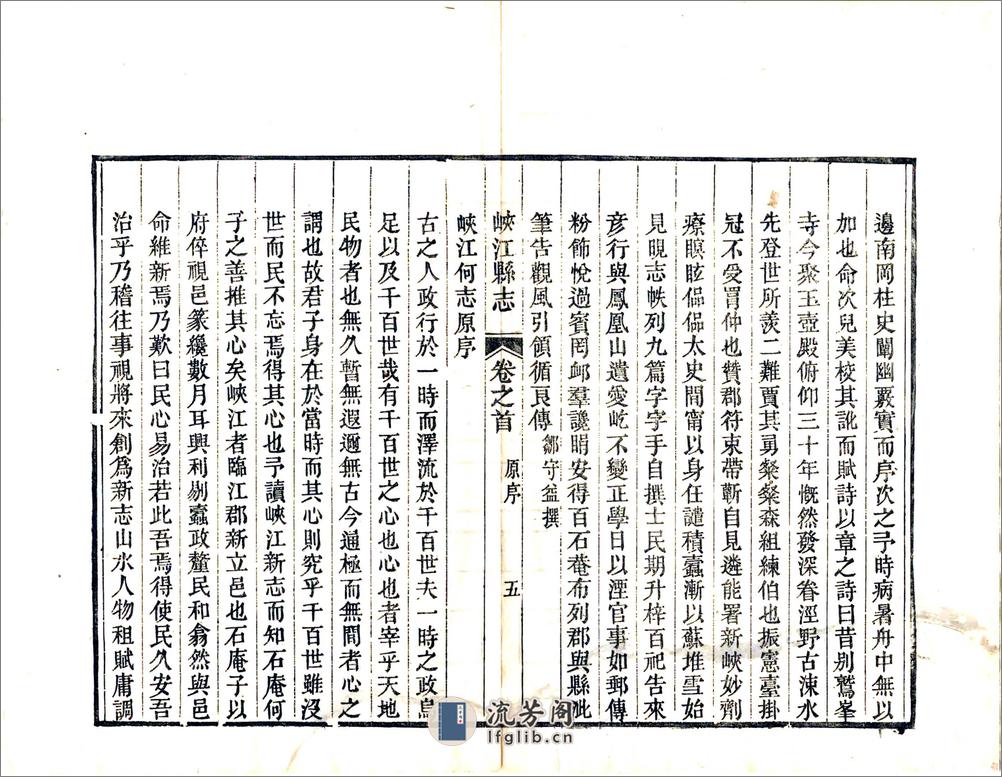 邊南岡柱史闡幽覈實而序次之予時病暑舟中無以
加也命次兒美校其訛而賦詩以章之詩曰昔別鷲峯
寺今聚玉壺殿俯仰三十年慨然發深眷涇野古涑水
先登世所羨二難賈其勇粲粲森組練伯也振憲臺掛
冠不受罥仲也贊郡符束帶靳自見遴能署新峽妙劑
療瞑眩偘偘太史間甯以身任譴積蠹漸以蘇堆雪始
見晛志帙列九篇字字手自撰士民期升梓百祀告來
彥行與鳳凰山遺愛屹不變正學日以湮官事如郵傳
粉飾悅過賓罔邮羣讒睊安得百石菴布列郡與縣泚
筆告觀風引領循良傳
鄒守益撰
峽江縣志
卷之首
原序
五
峽江何志原序
古之人政行於一時而澤流於千百世夫一時之政烏
足以及千百世哉有千百世之心也心也者宰乎天地
民物者也無久暫無遐邇無古今通極而無間者心之
謂也故君子身在於當時而其心則究乎千百世雖沒
世而民不忘焉得其心也予讀峽江新志而知石庵何
子之善推其心矣峽江者臨江郡新立邑也石庵子以
府倅視邑篆纔數月耳興利剔蠹政釐民和翕然與邑
命維新焉乃歎曰民心易治若此吾焉得使民久安吾
治乎乃稽往事視將來創為新志山水人物租賦庸調
流芳阁
lfglib.cn